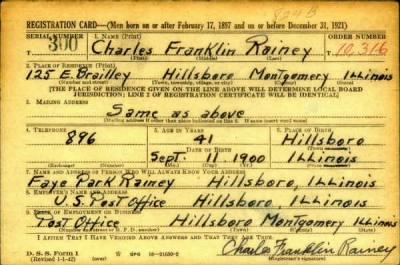 REGISTRATION CARD—(Men born on or after February 17, 1897 and on or before December 31, 1921)
SERIAL NUMBER 1. NAME (Print) ORDER NUMBER
T 300 Charles Franklin Rainey T 10,316
(First) (Middle) (Last)
2. PLACE OF RESIDENCE (Print)
125 E. Brailley Hillsboro Montgomery Illinois
(Number and street) (Town, township, village, or city) (County) (State)
[THE PLACE OF RESIDENCE GIVEN ON THE LINE ABOVE WILL DETERMINE LOCAL BOARD
JURISDICTION; LINE 2 OF REGISTRATION CERTIFICATE WILL BE IDENTICAL]
3. MAILING ADDRESS
Same as above
[Mailing address if other than place indicated on line 2. If same insert word same]
4. TELEPHONE 5. AGE IN YEARS 6. PLACE OF BIRTH
896 41 Hillsboro
DATE OF BIRTH (Town or county)
Sept. 11 1900 Illinois
(Exchange) (Number) (Mo.) (Day) (Yr.) (State or country)
7. NAME AND ADDRESS OF PERSON WHO WILL ALWAYS KNOW YOUR ADDRESS
Faye Park Rainey Hillsboro, Illinois
8. EMPLOYER'S NAME AND ADDRESS
U.S. Post Office Hillsboro, Illinois
9. PLACE OF EMPLOYMENT OR BUSINESS
Post Office Hillsboro Montgomery Illinois
(Number and street or R. F. D. number) (Town) (County) (State)
I AFFIRM THAT I HAVE VERIFIED ABOVE ANSWERS AND THAT THEY ARE TRUE.
D. S. S. Form 1 GPO 16—21630-2 Charles Franklin Rainey
(Revised 1-1-42) (over)